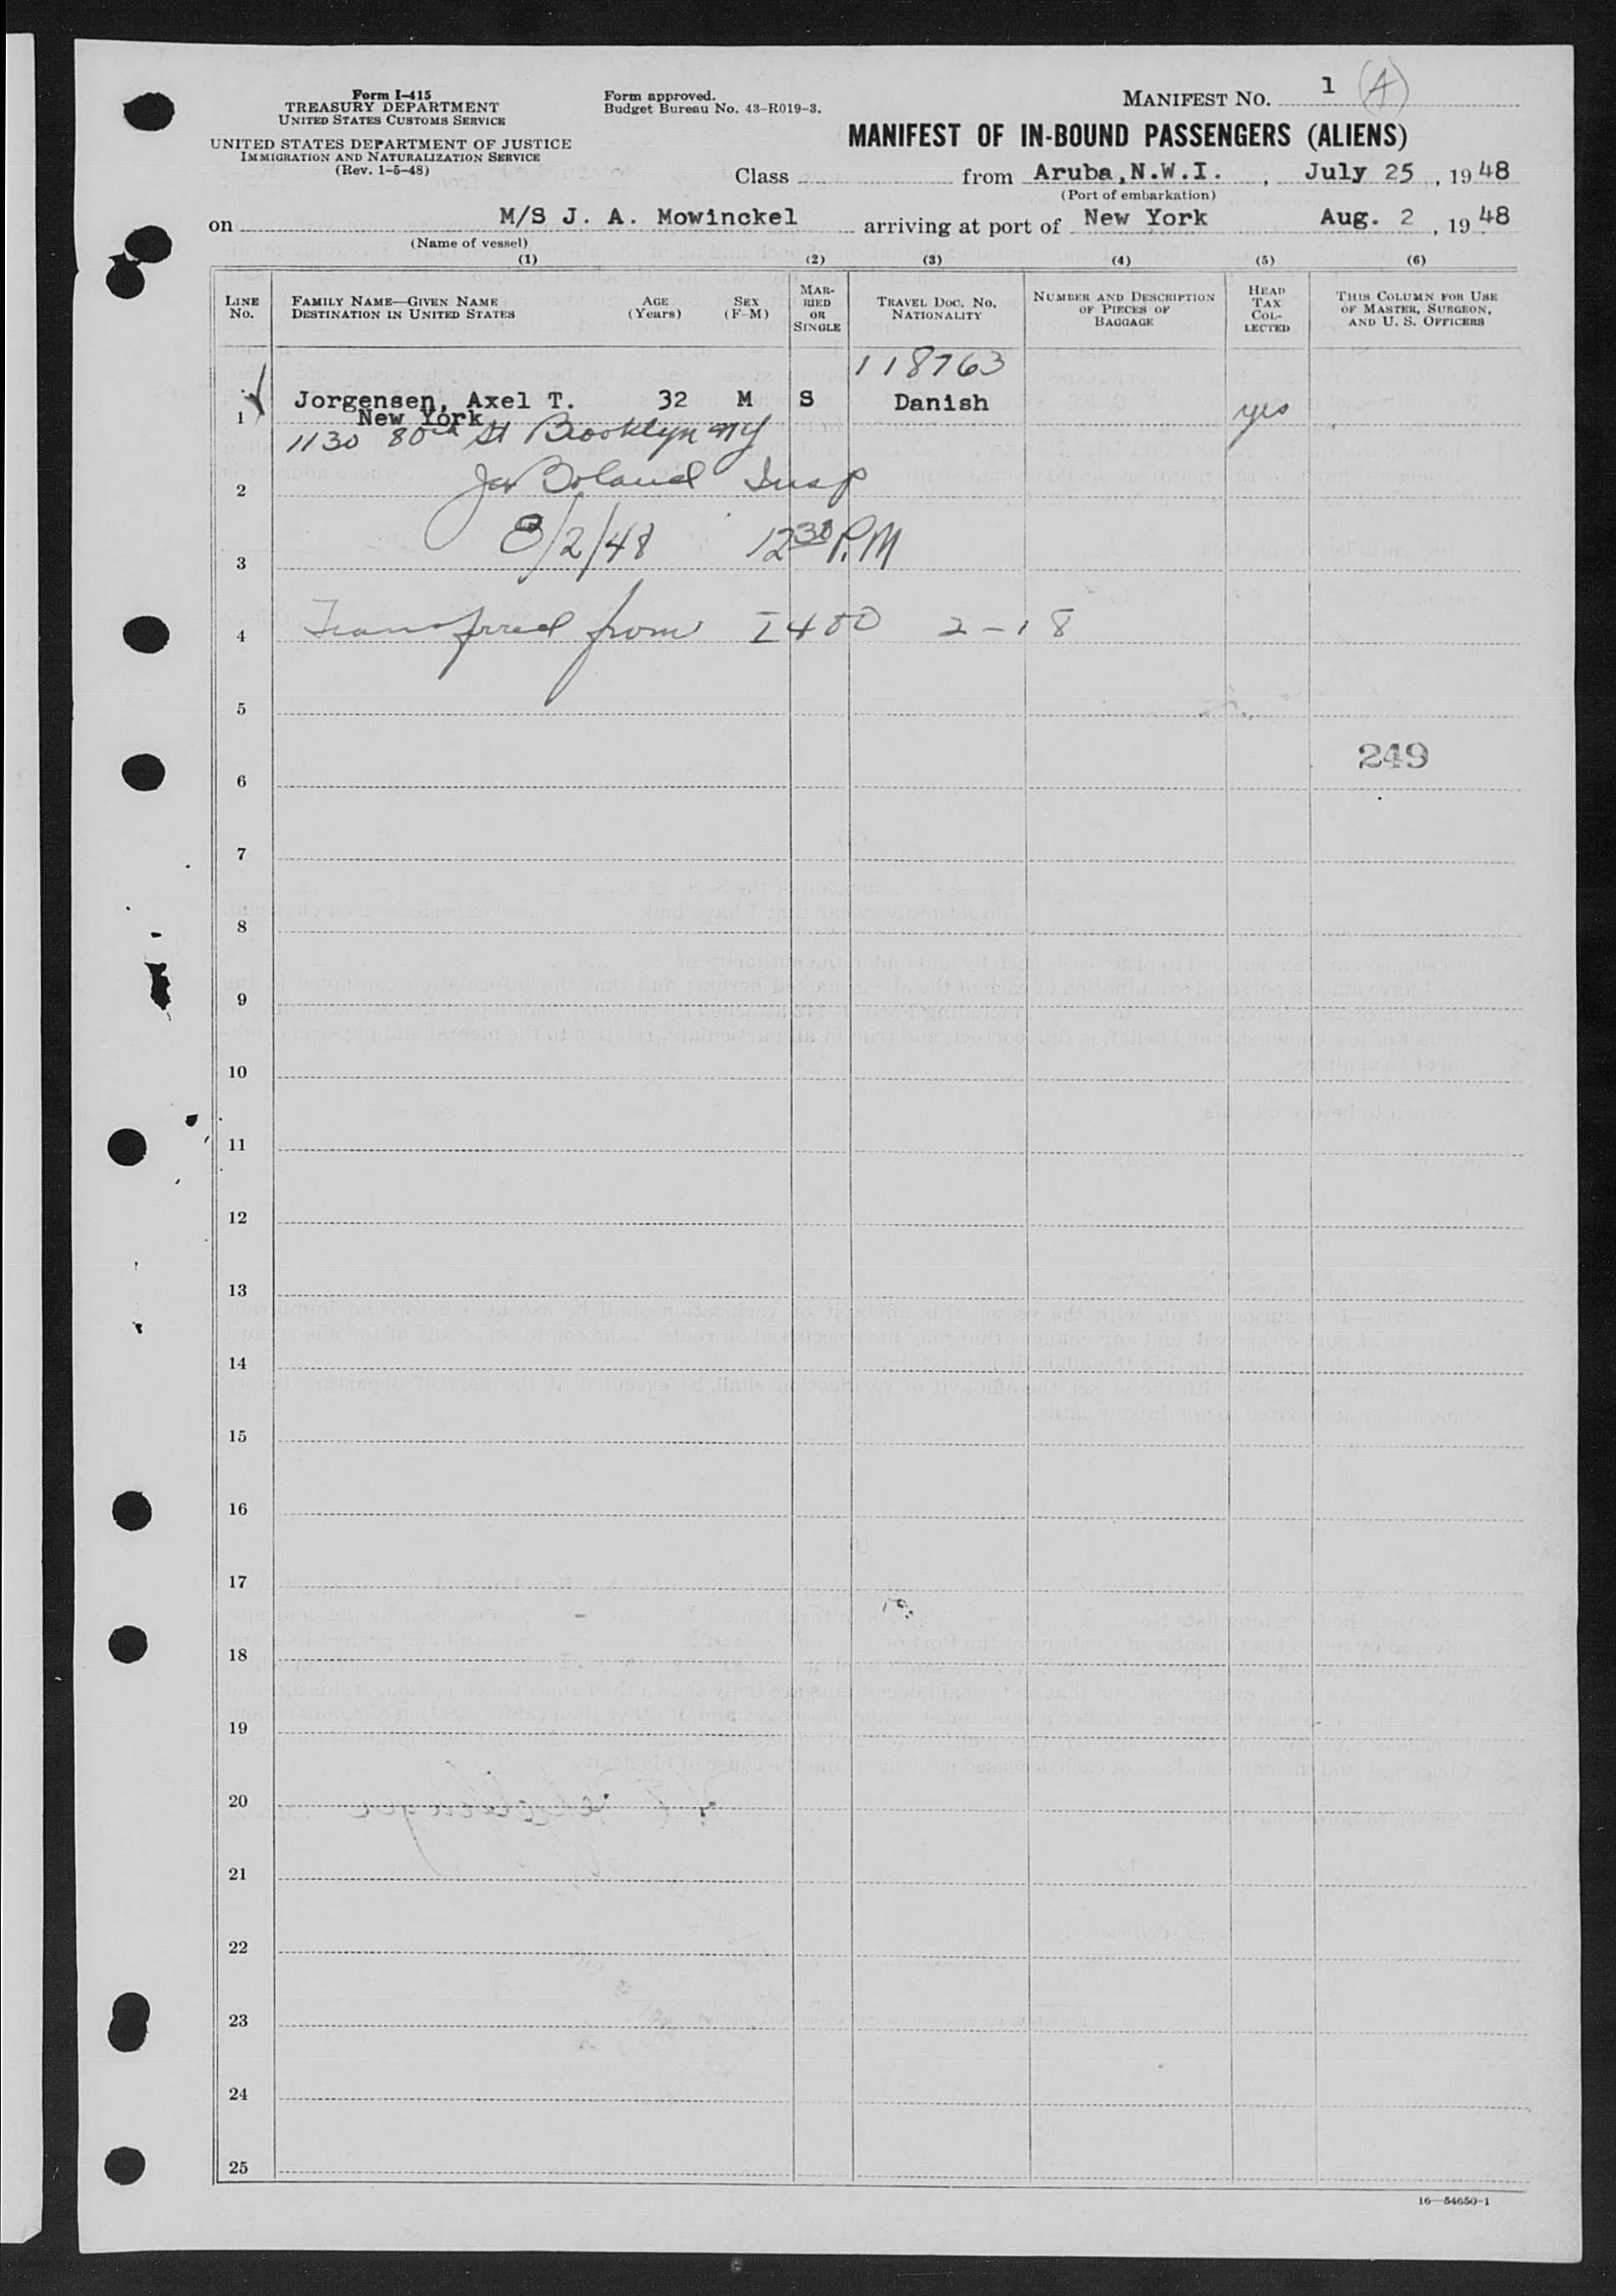 Form I-415
TREASURY DEPARTMENT
UNITED STATES CUSTOMS SERVICE
UNITED STATES DEPARTMENT OF JUSTICE
IMMIGRATION AND NATURALIZATION SERVICE
(Rev. 1-5-48)
Form approved.
Budget Bureau No. 43-R019-3.
MANIFEST NO. 1 (A)
MANIFEST OF IN-BOUND PASSENGERS (ALIENS)
Class from Aruba, N.W.I. , July 25 , 1948
(Port of embarkation)
on M/S J. A. Mowinckel arriving at port of New York Aug. 2 , 1948
(Name of vessel)
(1) (2) (3) (4) (5) (6)
LINE No.
FAMILY NAME—GIVEN NAME
DESTINATION IN UNITED STATES
AGE (Years)
SEX (F-M)
MARRIED OR SINGLE
TRAVEL DOC. NO. NATIONALITY
NUMBER AND DESCRIPTION OF PIECES OF BAGGAGE
HEAD TAX COLLECTED
THIS COLUMN FOR USE OF MASTER, SURGEON, AND U. S. OFFICERS
118763
1 Jorgensen, Axel T. 32 M S Danish yes
New York
1130 80th St Brooklyn NY
2 Jas Boland Insp
3 8/2/48 12 30 P.M
4 Transfrred from I 400 2-18
5
249
6
7
8
9
10
11
12
13
14
15
16
17
18
19
20
21
22
23
24
25
16—54650-1